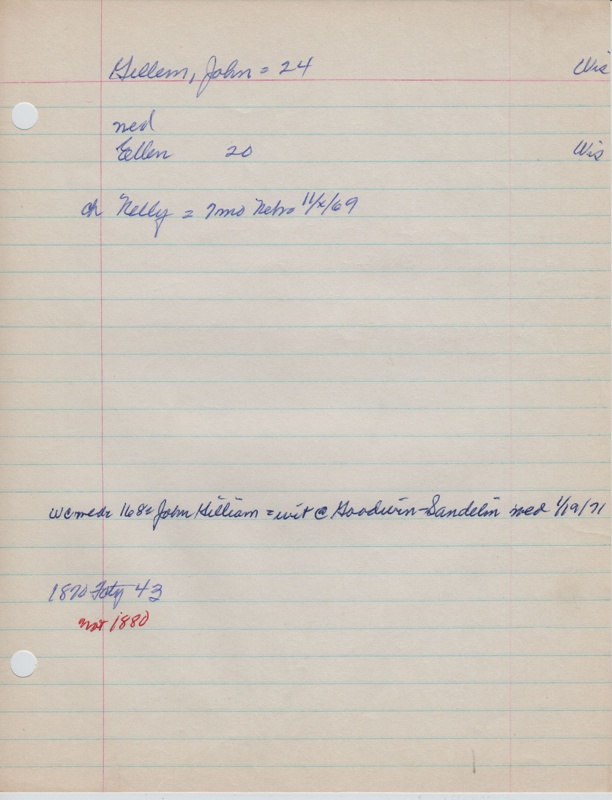 Gillem, John = 24 Wis
med
Ellen 20 Wis
ch Nelly = 7mo Nebr 11/x/69
wcmed= 168= John Gilliam = wit @ Goodwin-Sandelin med 1/19/71
1870 Foty 43
not 1880